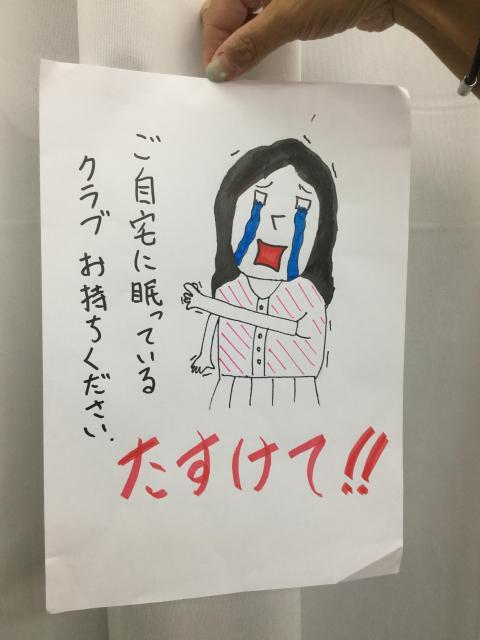 ご自宅に眠っている
クラブ お持ちください.
たすけて!!